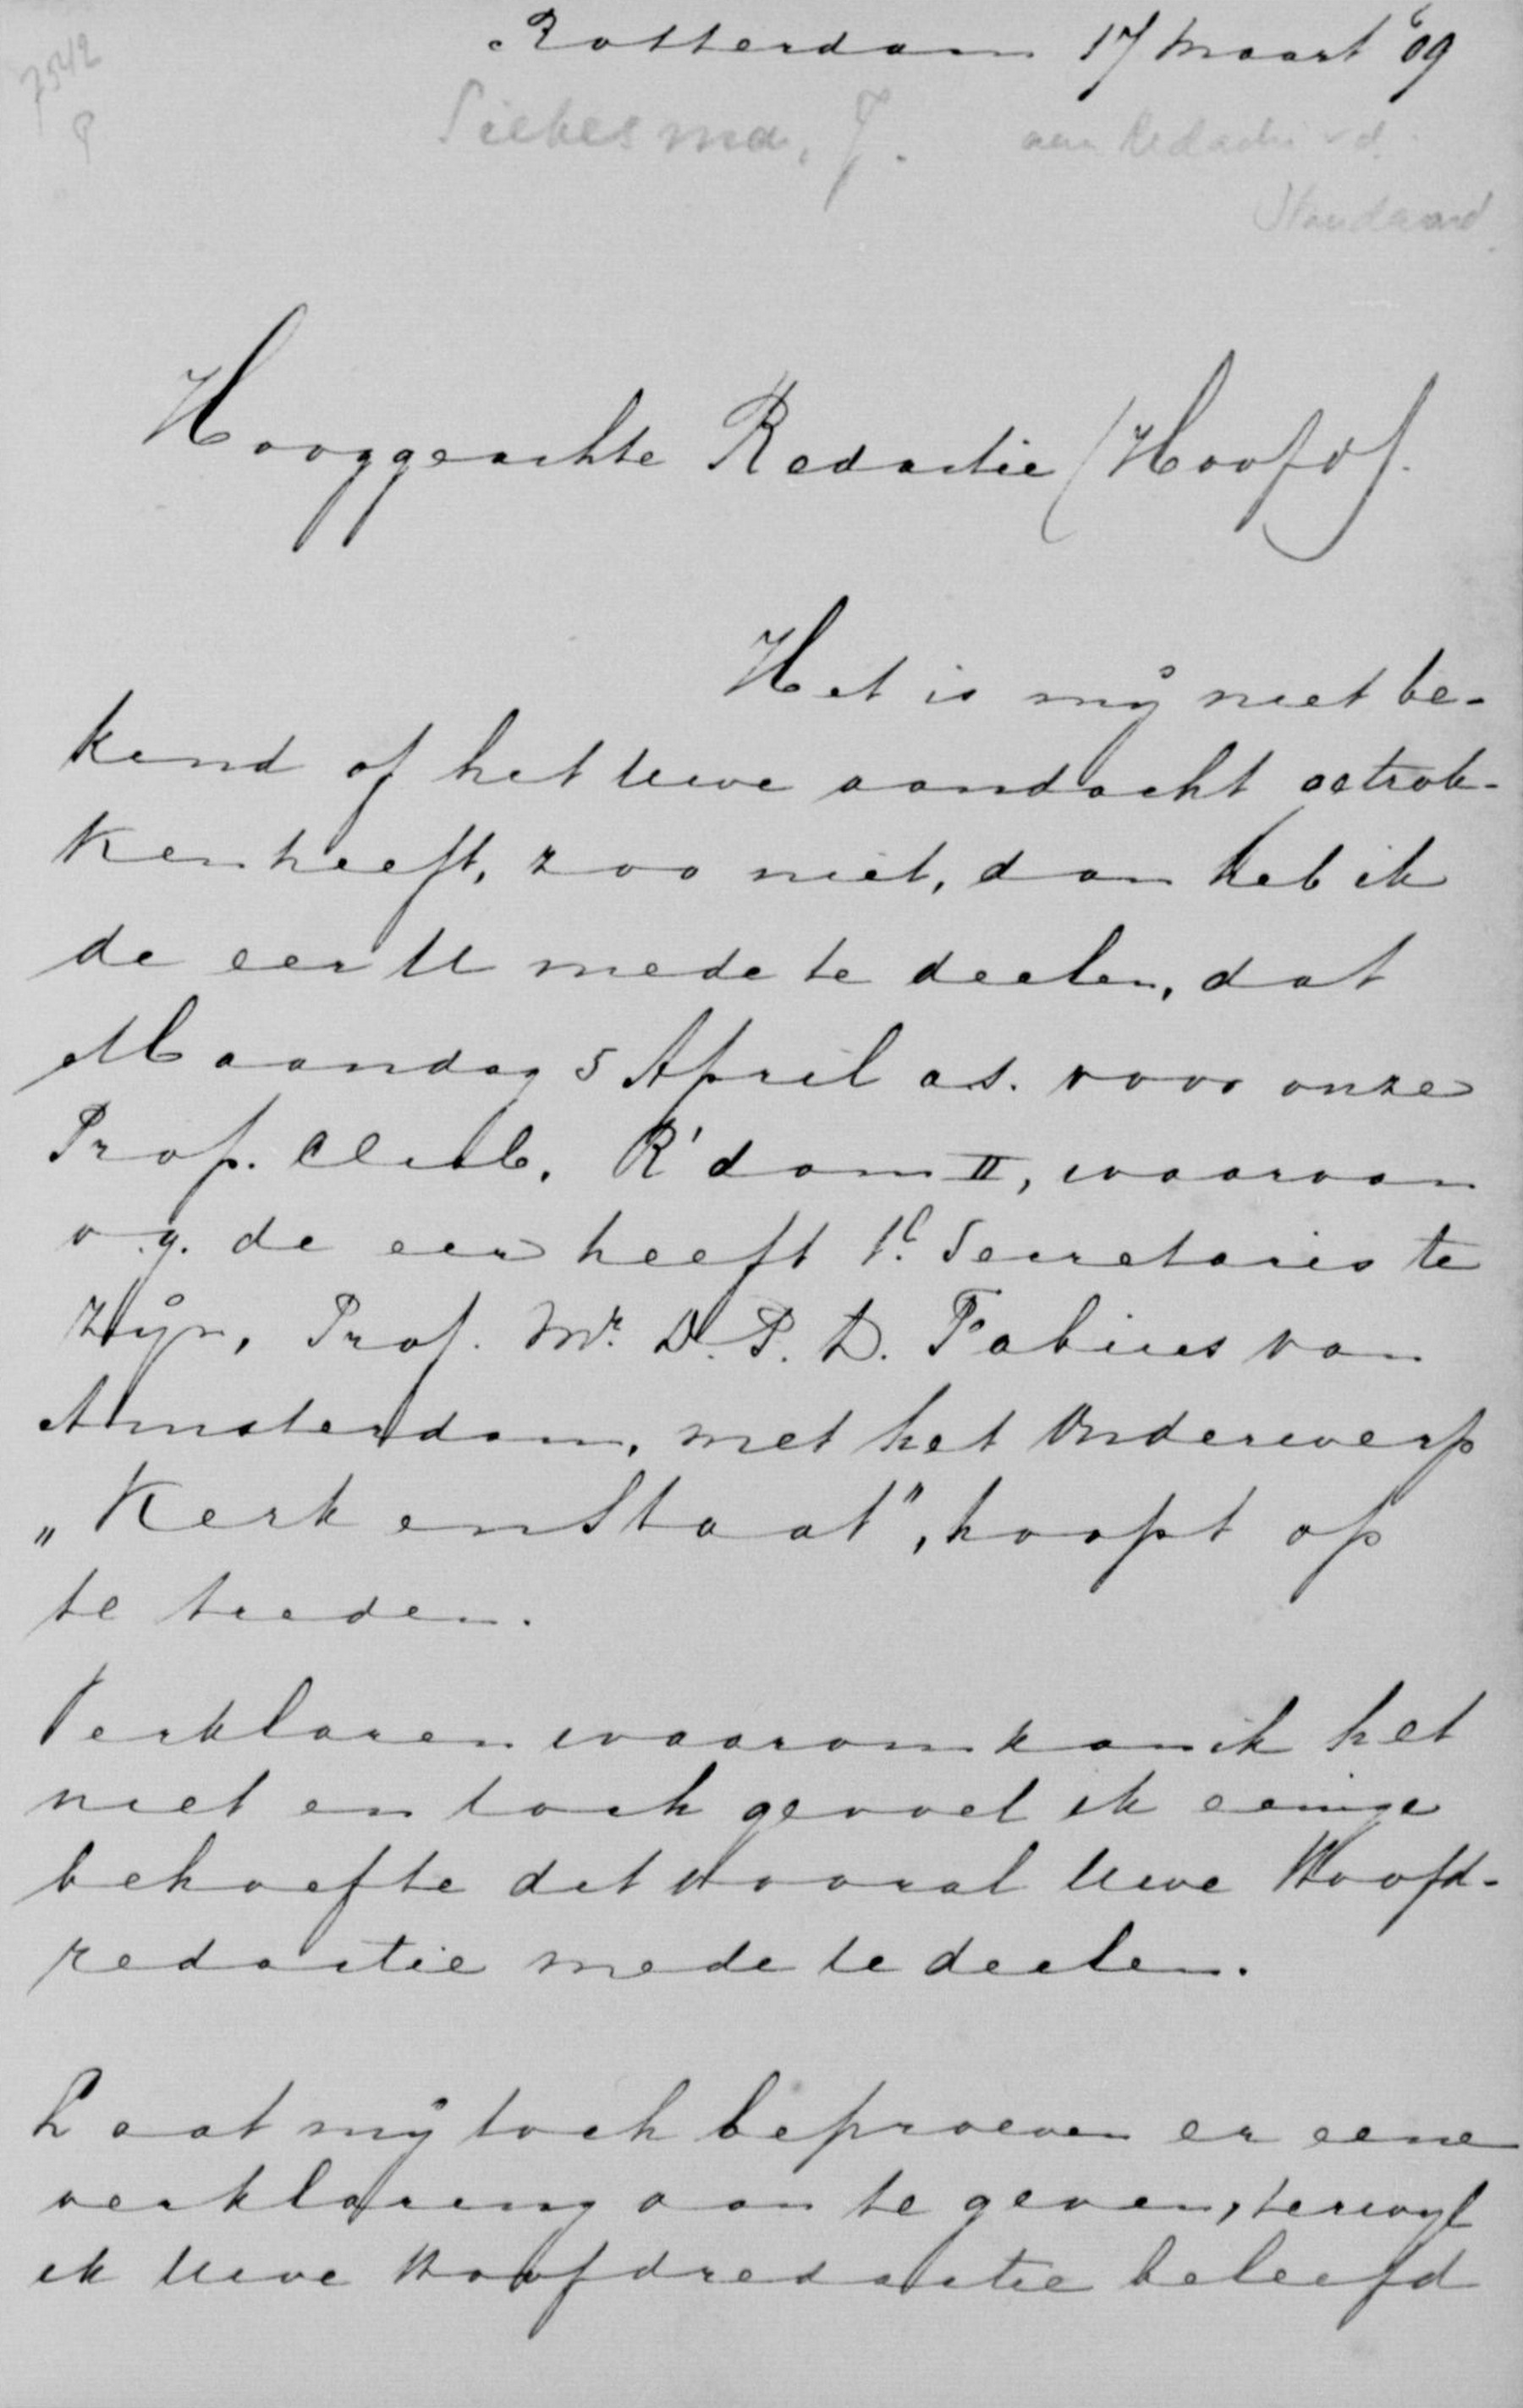 Rotterdam 17 Maart '09
7542
Siebesma, J. aan Redactie v.d.
Standaard
Hooggeachte Redactie (Hoofd).
Het is mij niet be-
kend of het Uwe aandacht getrok-
ken heeft, zoo niet, dan heb ik
de eer U mede te deelen, dat
Maandag 5 April a.s. voor onze
Prop. Club. R'dam II, waarvan
o.g. de eer heeft 1e Secretaris te
zijn, Prof. Mr. D.P.D. Fabius van
Amsterdam, met het Onderwerp
„Kerk en Staat", hoopt op
te treden.
Verklaren waarom kan ik het
niet en toch gevoel ik eenige
behoefte dit vooral Uwe Hoofd-
redactie mede te deelen.
Laat mij toch beproeven er eene
verklaring aan te geven, terwyl
ik Uwe Hoofdredactie beleefd